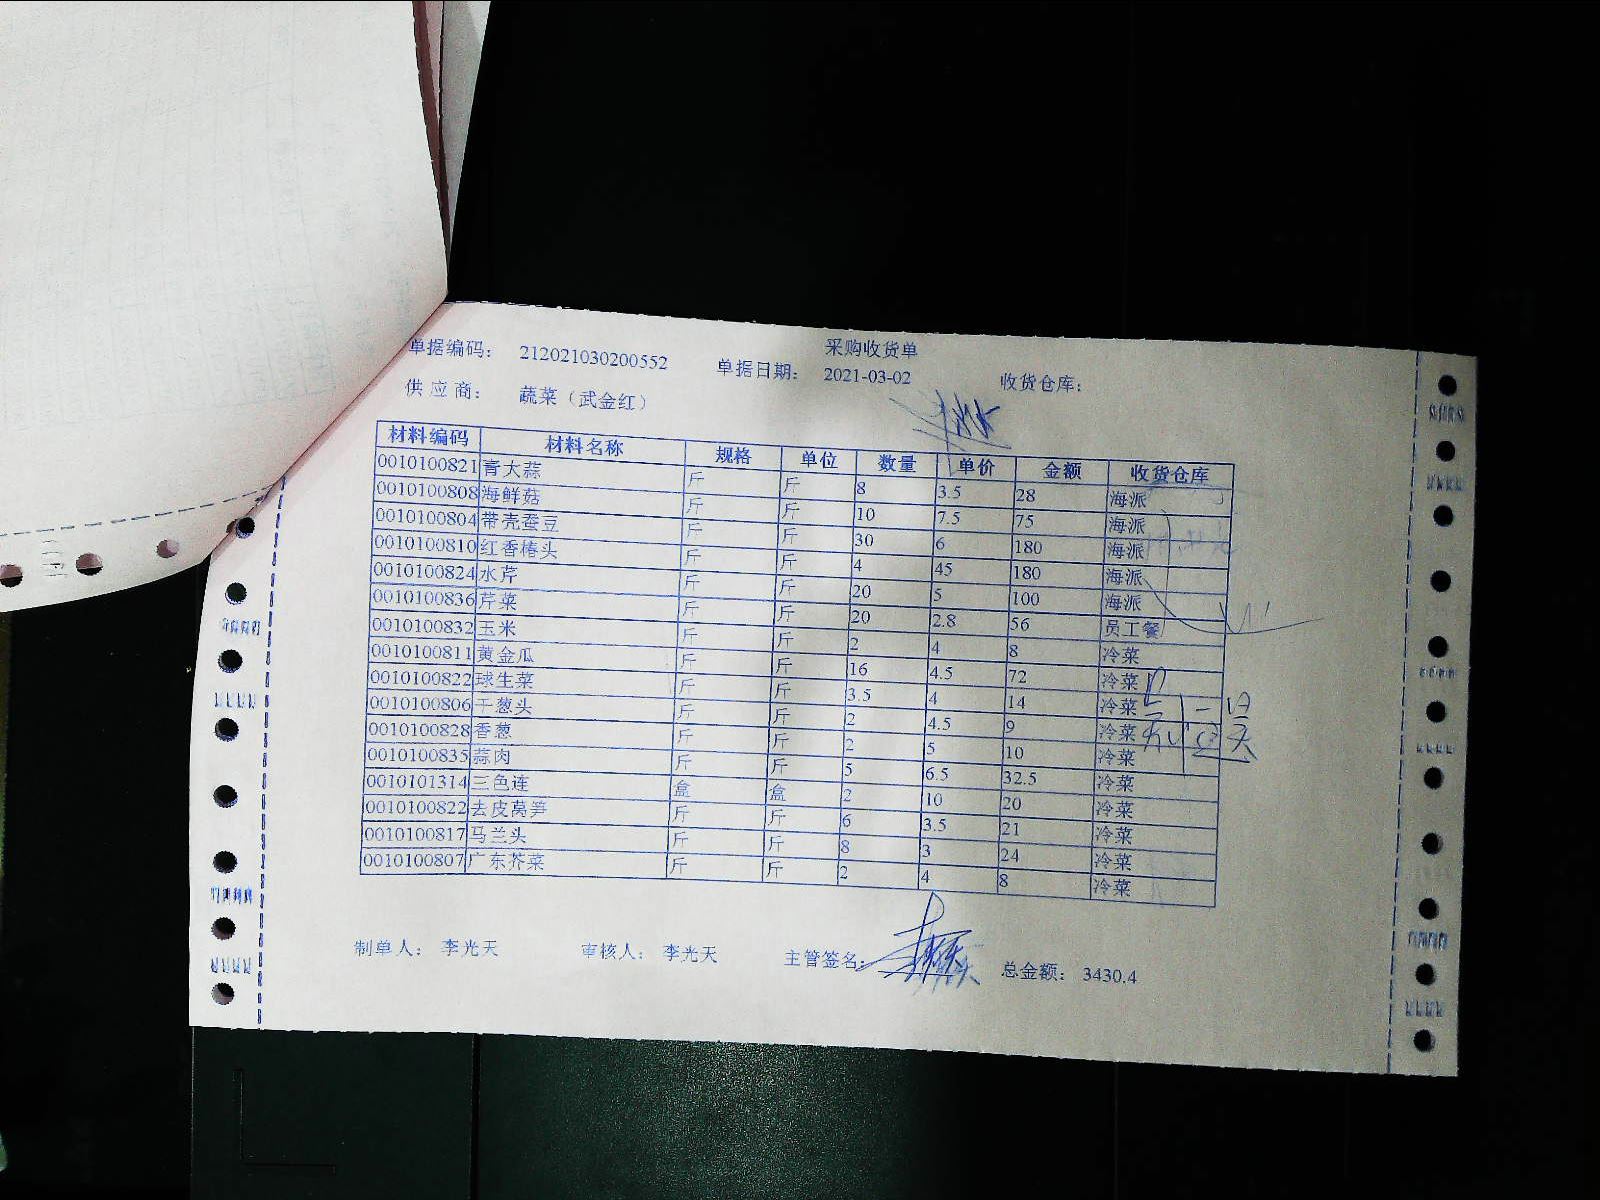 采购收货单
单据编码： 212021030200552 单据日期： 2021-03-02 收货仓库：
供 应 商： 蔬菜（武金红）
材料编码 材料名称 规格 单位 数量 单价 金额 收货仓库
0010100821 青大蒜 斤 斤 8 3.5 28 海派
0010100808 海鲜菇 斤 斤 10 7.5 75 海派
0010100804 带壳蚕豆 斤 斤 30 6 180 海派
0010100810 红香椿头 斤 斤 4 45 180 海派
0010100824 水芹 斤 斤 20 5 100 海派
0010100836 芹菜 斤 斤 20 2.8 56 员工餐
0010100832 玉米 斤 斤 2 4 8 冷菜
0010100811 黄金瓜 斤 斤 16 4.5 72 冷菜
0010100822 球生菜 斤 斤 3.5 4 14 冷菜
0010100806 干葱头 斤 斤 2 4.5 9 冷菜
0010100828 香葱 斤 斤 2 5 10 冷菜
0010100835 蒜肉 斤 斤 5 6.5 32.5 冷菜
0010101314 三色连 盒 盒 2 10 20 冷菜
0010100822 去皮莴笋 斤 斤 6 3.5 21 冷菜
0010100817 马兰头 斤 斤 8 3 24 冷菜
0010100807 广东芥菜 斤 斤 2 4 8 冷菜
制单人： 李光天 审核人： 李光天 主管签名： 总金额： 3430.4